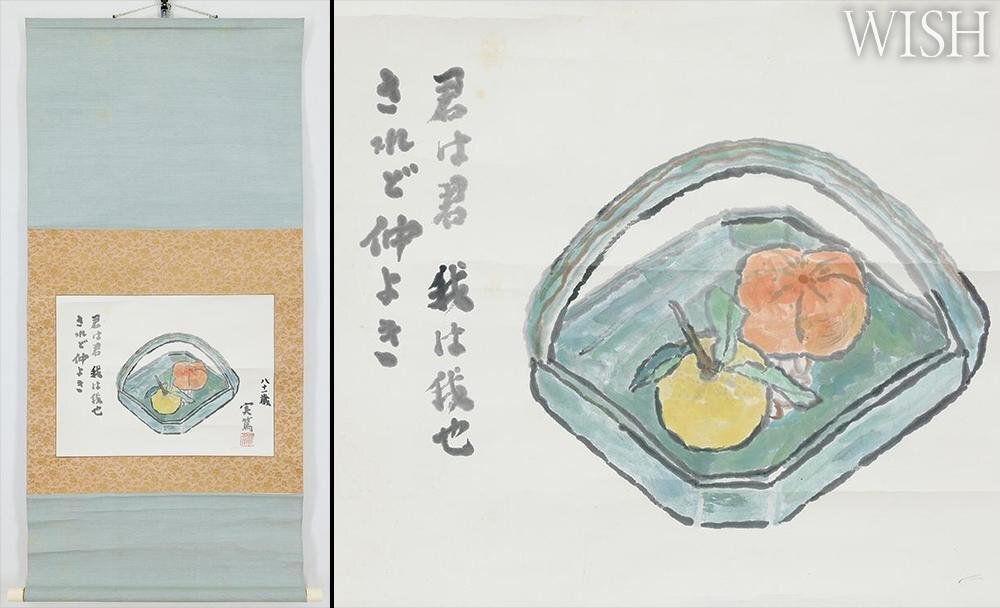 実篤
君は君 我は我也
されど仲よき
君は君 我は我也
されど仲よき
WISH